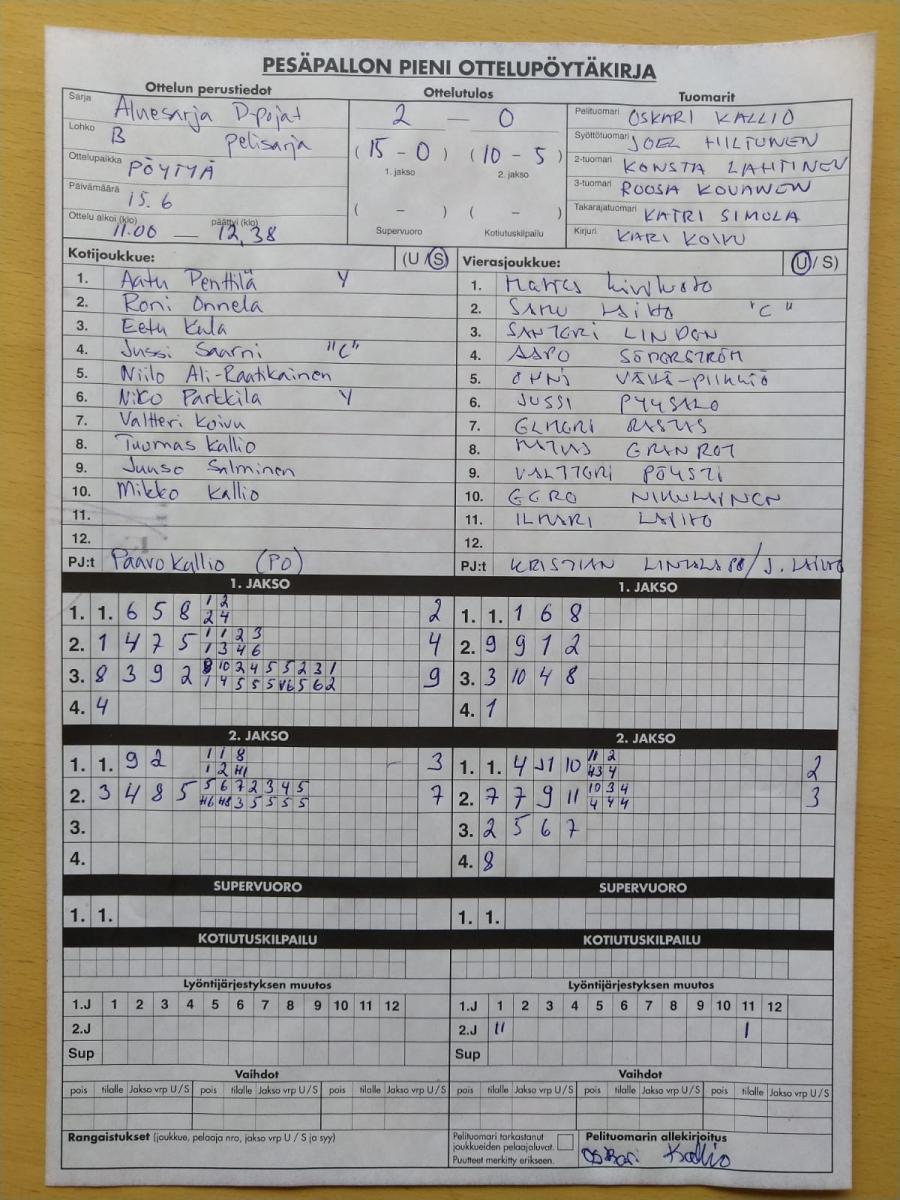 PESÄPALLON PIENI OTTELUPÖYTÄKIRJA
Ottelun perustiedot
Sarja Aluesarja D-pojat
Lohko B pelisarja
Ottelupaikka PÖYTYÄ
Päivämäärä 15.6
Ottelu alkoi (klo) 11.00 — päättyi (klo) 12,38
Ottelutulos
2 — 0
(15 - 0) (10 - 5)
1. jakso 2. jakso
( - ) ( - )
Supervuoro Kotiutuskilpailu
Tuomarit
Pelituomari OSKARI KALLIO
Syöttötuomari JOEL HILTUNEN
2-tuomari KONSTA LAHTINEN
3-tuomari ROOSA KOVANEN
Takarajatuomari KATRI SIMOLA
Kirjuri KARI KOIVU
Kotijoukkue: (U/S)
1. Aatu Penttilä Y
2. Roni Onnela
3. Eetu Kula
4. Jussi Saarni "C"
5. Niilo Ali-Raatikainen
6. Niko Parkkila Y
7. Valtteri Koivu
8. Tuomas Kallio
9. Juuso Salminen
10. Mikko Kallio
11.
12.
PJ:t Paavo Kallio (PO)
Vierasjoukkue: (U/S)
1.
2. SAMU LAIHO "C"
3. SANTERI LINDEN
4. AAPO SÖDERSTRÖM
5. OHNI VÄHÄ-PIIKKIÖ
6. JUSSI PYYSALO
7. ELMERI RASTAS
8. GRANROT
9. VALTTERI PÖYSTI
10. EERO NIKULAINEN
11. ILMARI LAIHO
12.
PJ:t KRISTIAN / J. LAIHO
1. JAKSO
1. 1. 6 5 8 1 2 2
2 4
2. 1 4 7 5 1 1 2 3 4
1 3 4 6
3. 8 3 9 2 8 10 2 4 5 5 2 3 1 9
1 4 5 5 5 5 6 2
4. 4
1. JAKSO
1. 1. 1 6 8
2. 9 9 1 2
3. 3 10 4 8
4. 1
2. JAKSO
1. 1. 9 2 1 1 8 3
1 2 H1
2. 3 4 8 5 5 6 7 2 3 4 5 7
H6 H8 3 5 5 5 5
3.
4.
2. JAKSO
1. 1. 4 11 10 11 2 2
H3 4
2. 7 7 9 11 10 3 4 3
4 4 4
3. 2 5 6 7
4. 8
SUPERVUORO
1. 1.
SUPERVUORO
1. 1.
KOTIUTUSKILPAILU
KOTIUTUSKILPAILU
Lyöntijärjestyksen muutos
1.J 1 2 3 4 5 6 7 8 9 10 11 12
2.J
Sup
Lyöntijärjestyksen muutos
1.J 1 2 3 4 5 6 7 8 9 10 11 12
2.J 11 1
Sup
Vaihdot
pois tilalle Jakso vrp U/S pois tilalle Jakso vrp U/S pois tilalle Jakso vrp U/S
Vaihdot
pois tilalle Jakso vrp U/S pois tilalle Jakso vrp U/S pois tilalle Jakso vrp U/S
Rangaistukset (joukkue, pelaaja nro, jakso vrp U / S ja syy)
Pelituomari tarkastanut
joukkueiden pelaajaluvat.
Puutteet merkitty erikseen.
Pelituomarin allekirjoitus
Oskari Kallio